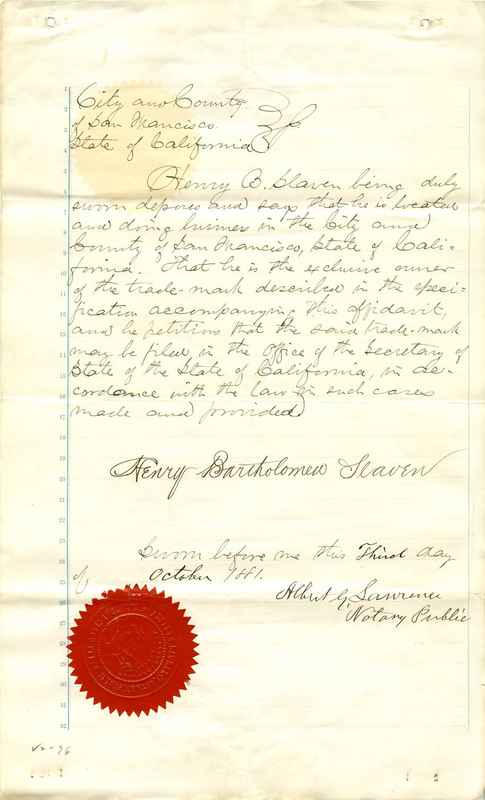 City and County
of San Francisco
State of California
Henry B. Slaven being duly
sworn deposes and says that he is located
and doing business in the City and
County of San Francisco, State of Cali-
fornia. That he is the exclusive owner
of the trade-mark described in the speci-
fication accompanying this affidavit,
and he petitions that the said trade-mark
may be filed in the office of the Secretary of
State of the State of California, in ac-
cordance with the law in such cases
made and provided
Henry Bartholomew Slaven
Sworn before me this Third day
of October 1881.
Albert G. Lawrence
Notary Public
1
2
3
4
5
6
7
8
9
10
11
12
13
14
15
16
17
18
19
20
21
22
23
24
25
26
27
28
29
30
31
32